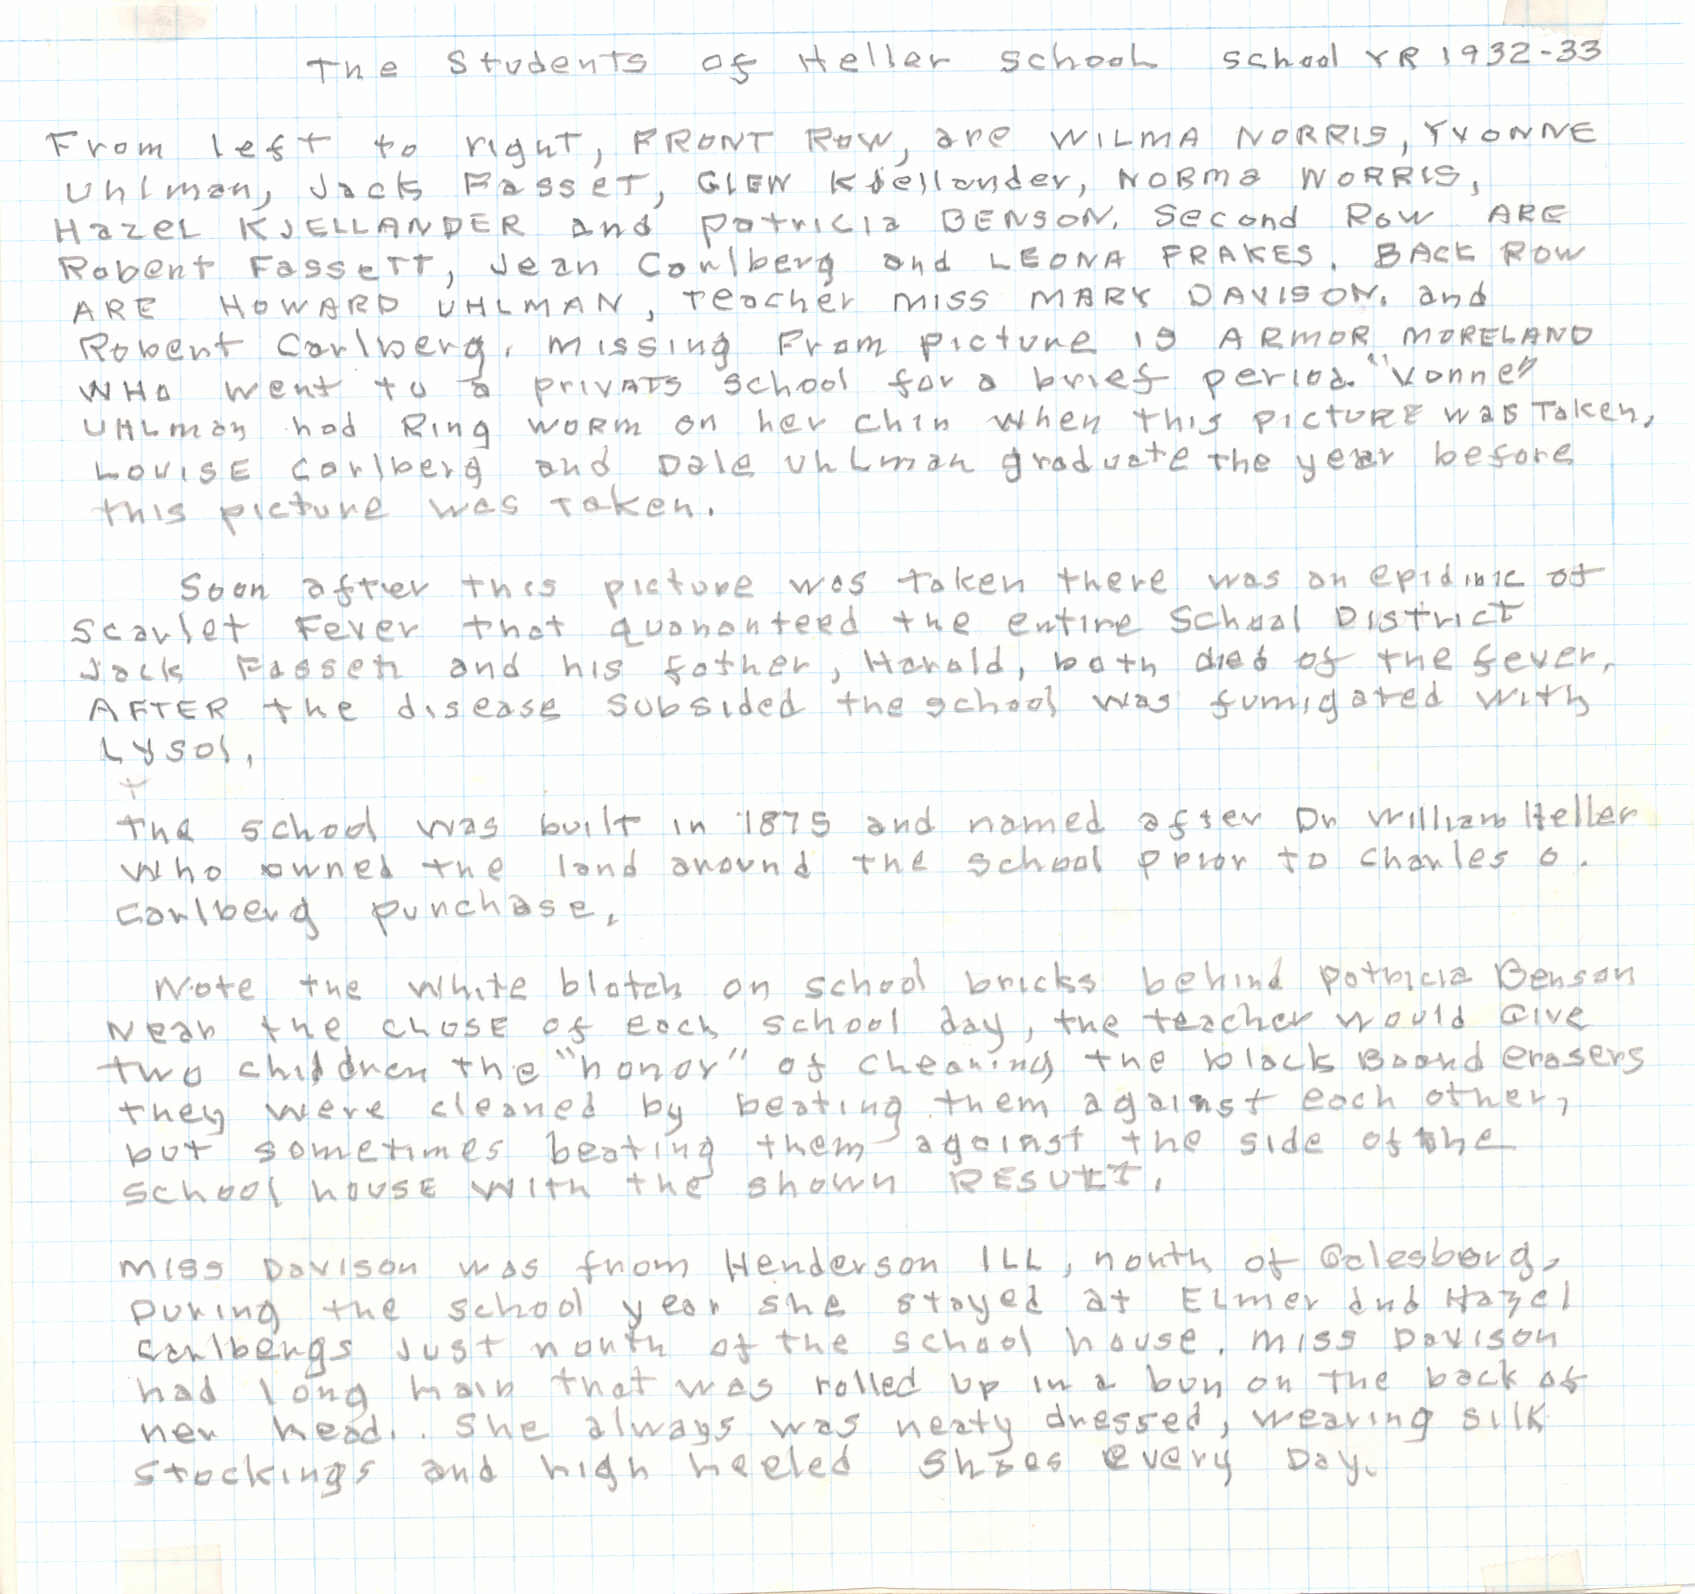 The Students of Heller School School YR 1932-33
From left to right, FRONT ROW, are WILMA NORRIS, YVONNE
Uhlman, Jack FasseT, GLEN Kjellander, NORMa NORRIS,
HazeL KJELLANDER and Patricia BENSON. Second Row ARE
Robert FasseTT, Jean Carlberg and LEONA FRAKES. BACK ROW
ARE HOWARD UHLMAN, Teacher MISS MARY DAVISON. and
Robert Carlberg. Missing From picture is ARMOR MORELAND
WHO went to a privaTe School for a brief period. "Vonne"
UHLman had Ring worm on her chin when this picTURE was Taken,
LOUISE Carlberg and Dale UhLman graduate the year before
this picture was Taken.
Soon after this picture was taken there was an epidimic of
Scarlet Fever that quaronteed the entire School District
Jack Fassett and his father, Harold, both died of the fever,
AFTER the disease subsided the school was fumigated with
Lysol,
The school was built in 1875 and named after Dr William Heller
Who owned the land around the school prior to Charles O.
Carlberg purchase,
Note the white blotch on school bricks behind Patricia Benson
Near the cLOSE of each school day, the teacher would Give
two children the "honor" of cleaning the black Board erasers
they were cleaned by beating them against each other,
but sometimes beating them against the side of the
School house with the shown RESULT,
Miss Davison was from Henderson ILL, north of Galesburg,
During the school year she stayed at ELmer and Hazel
Carlbergs Just north of the school house. Miss Davison
had long hair that was rolled up in a bun on the back of
her head.. She always was neaty dressed, wearing silk
stockings and high heeled shoes every Day.